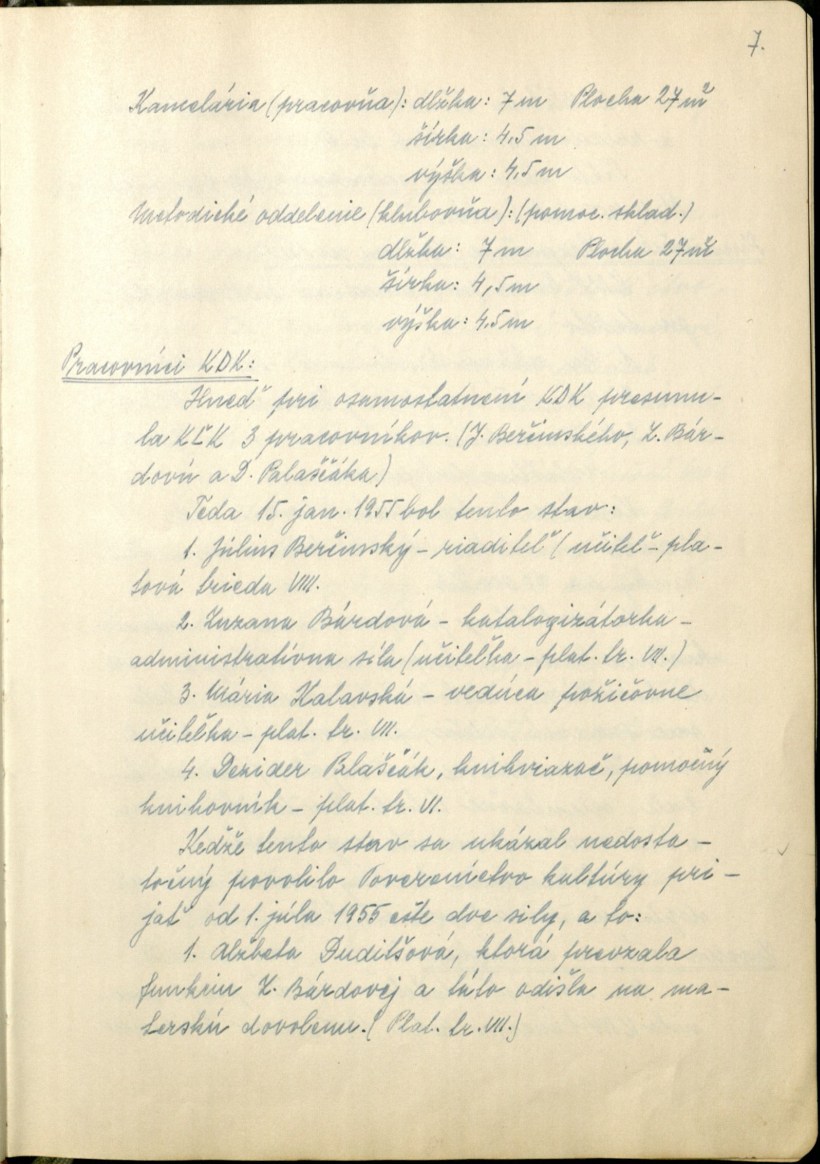 7.
Kancelária (pracovňa): dlžka: 7 m Plocha 27 m²
šírka: 4,5 m
výška: 4,5 m
Metodické oddelenie (klubovňa): (pomoc. sklad.)
dlžka: 7 m Plocha 27 m²
šírka: 4,5 m
výška: 4,5 m
Pracovníci KDK:
Hneď pri osamostatnení KDK presunu-
la KĽK 3 pracovníkov. (J. Berčinského, Z. Bár-
dovú a D. Palaščáka)
Teda 15. jan. 1955 bol tento stav:
1. Július Berčinský - riaditeľ (učiteľ - pla-
tová trieda VIII.
2. Zuzana Bárdová - katalogizátorka -
administratívna sila (učiteľka - plat. tr. VII.)
3. Mária Kalavská - vedúca požičovne
učiteľka - plat. tr. VII.
4. Dezider Blaščák, knihviazač, pomocný
knihovník - plat. tr. VI.
Kedže tento stav sa ukázal nedosta-
točný povolilo Povereníctvo kultúry pri-
jať od 1. júla 1955 ešte dve sily, a to:
1. Alžbeta Dudišová, ktorá prevzala
funkciu Z. Bárdovej a táto odišla na ma-
terskú dovolenu. (Plat. tr. VII.)